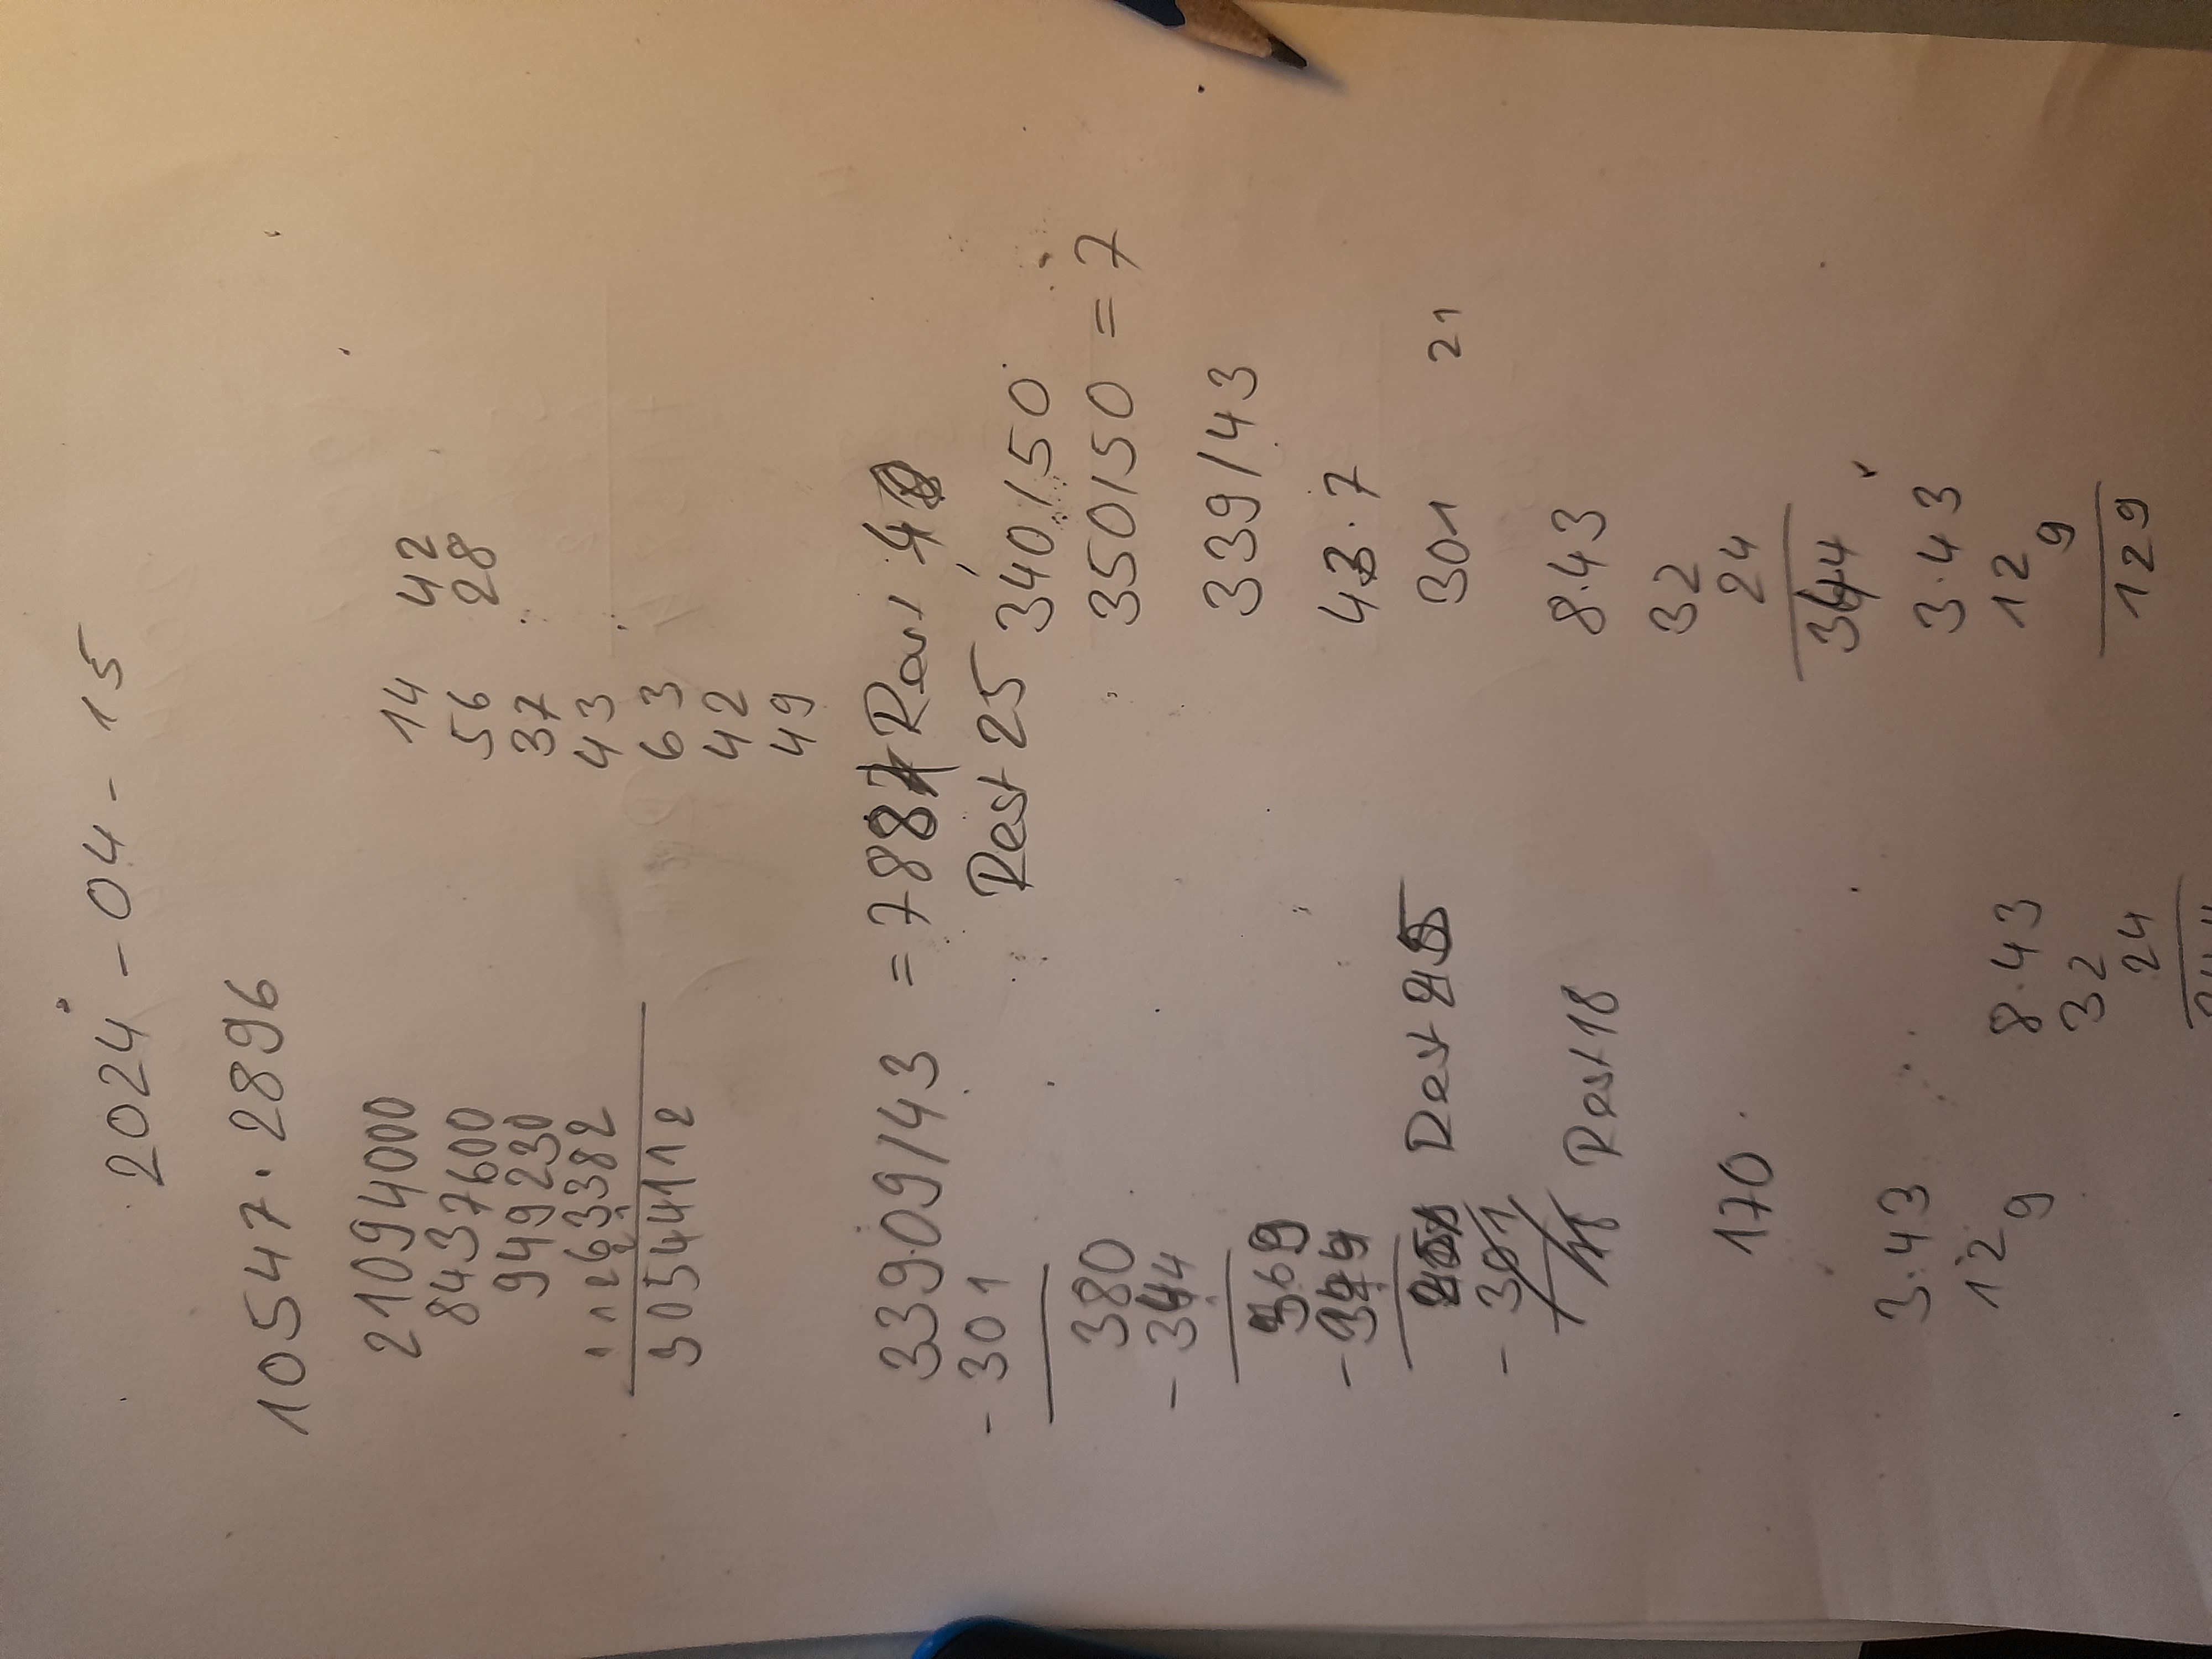 2024 - 04 - 15
10547 · 2896
21094000 14 42
8437600 56 28
949230 37
63382 43
30544112 63
42
49
33909/43 = 788 Rest 4
- 301 Rest 25 340/50
380 350/50 = 7
- 344 339/43
369 43·7
- 344 301 21
Rest 25
- 301 8·43
Rest 18 32
24
170 344
3·43 3·43
12 12
9 9
129
8·43
32
24